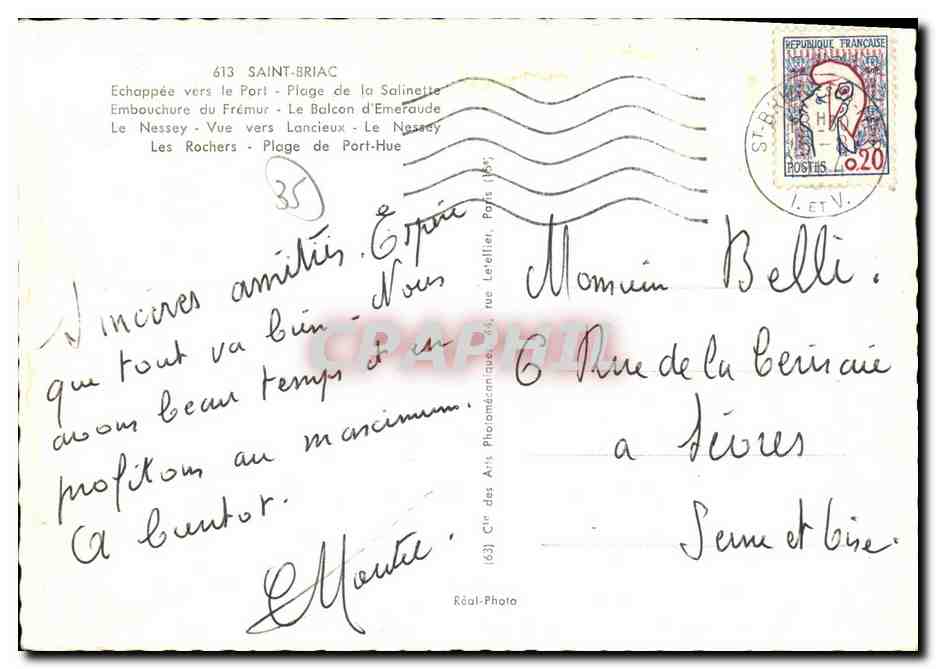 613 SAINT-BRIAC
Echappée vers le Port - Plage de la Salinette
Embouchure du Frémur - Le Balcon d'Emeraude
Le Nessey - Vue vers Lancieux - Le Nessey
Les Rochers - Plage de Port-Hue
35
Sincères amitiés. Espère
que tout va bien - Nous
avons beau temps et en
profitons au maximum.
A bientot.
REPUBLIQUE FRANÇAISE
POSTES 0.20
I. ET V.
Monsieur Belli.
6 Rue de la Cerisaie
a Sèvres
Seine et Oise.
(63) Cie des Arts Photomécanique, 44, rue Letellier, Paris (15e)
Réal-Photo
CPARAMA